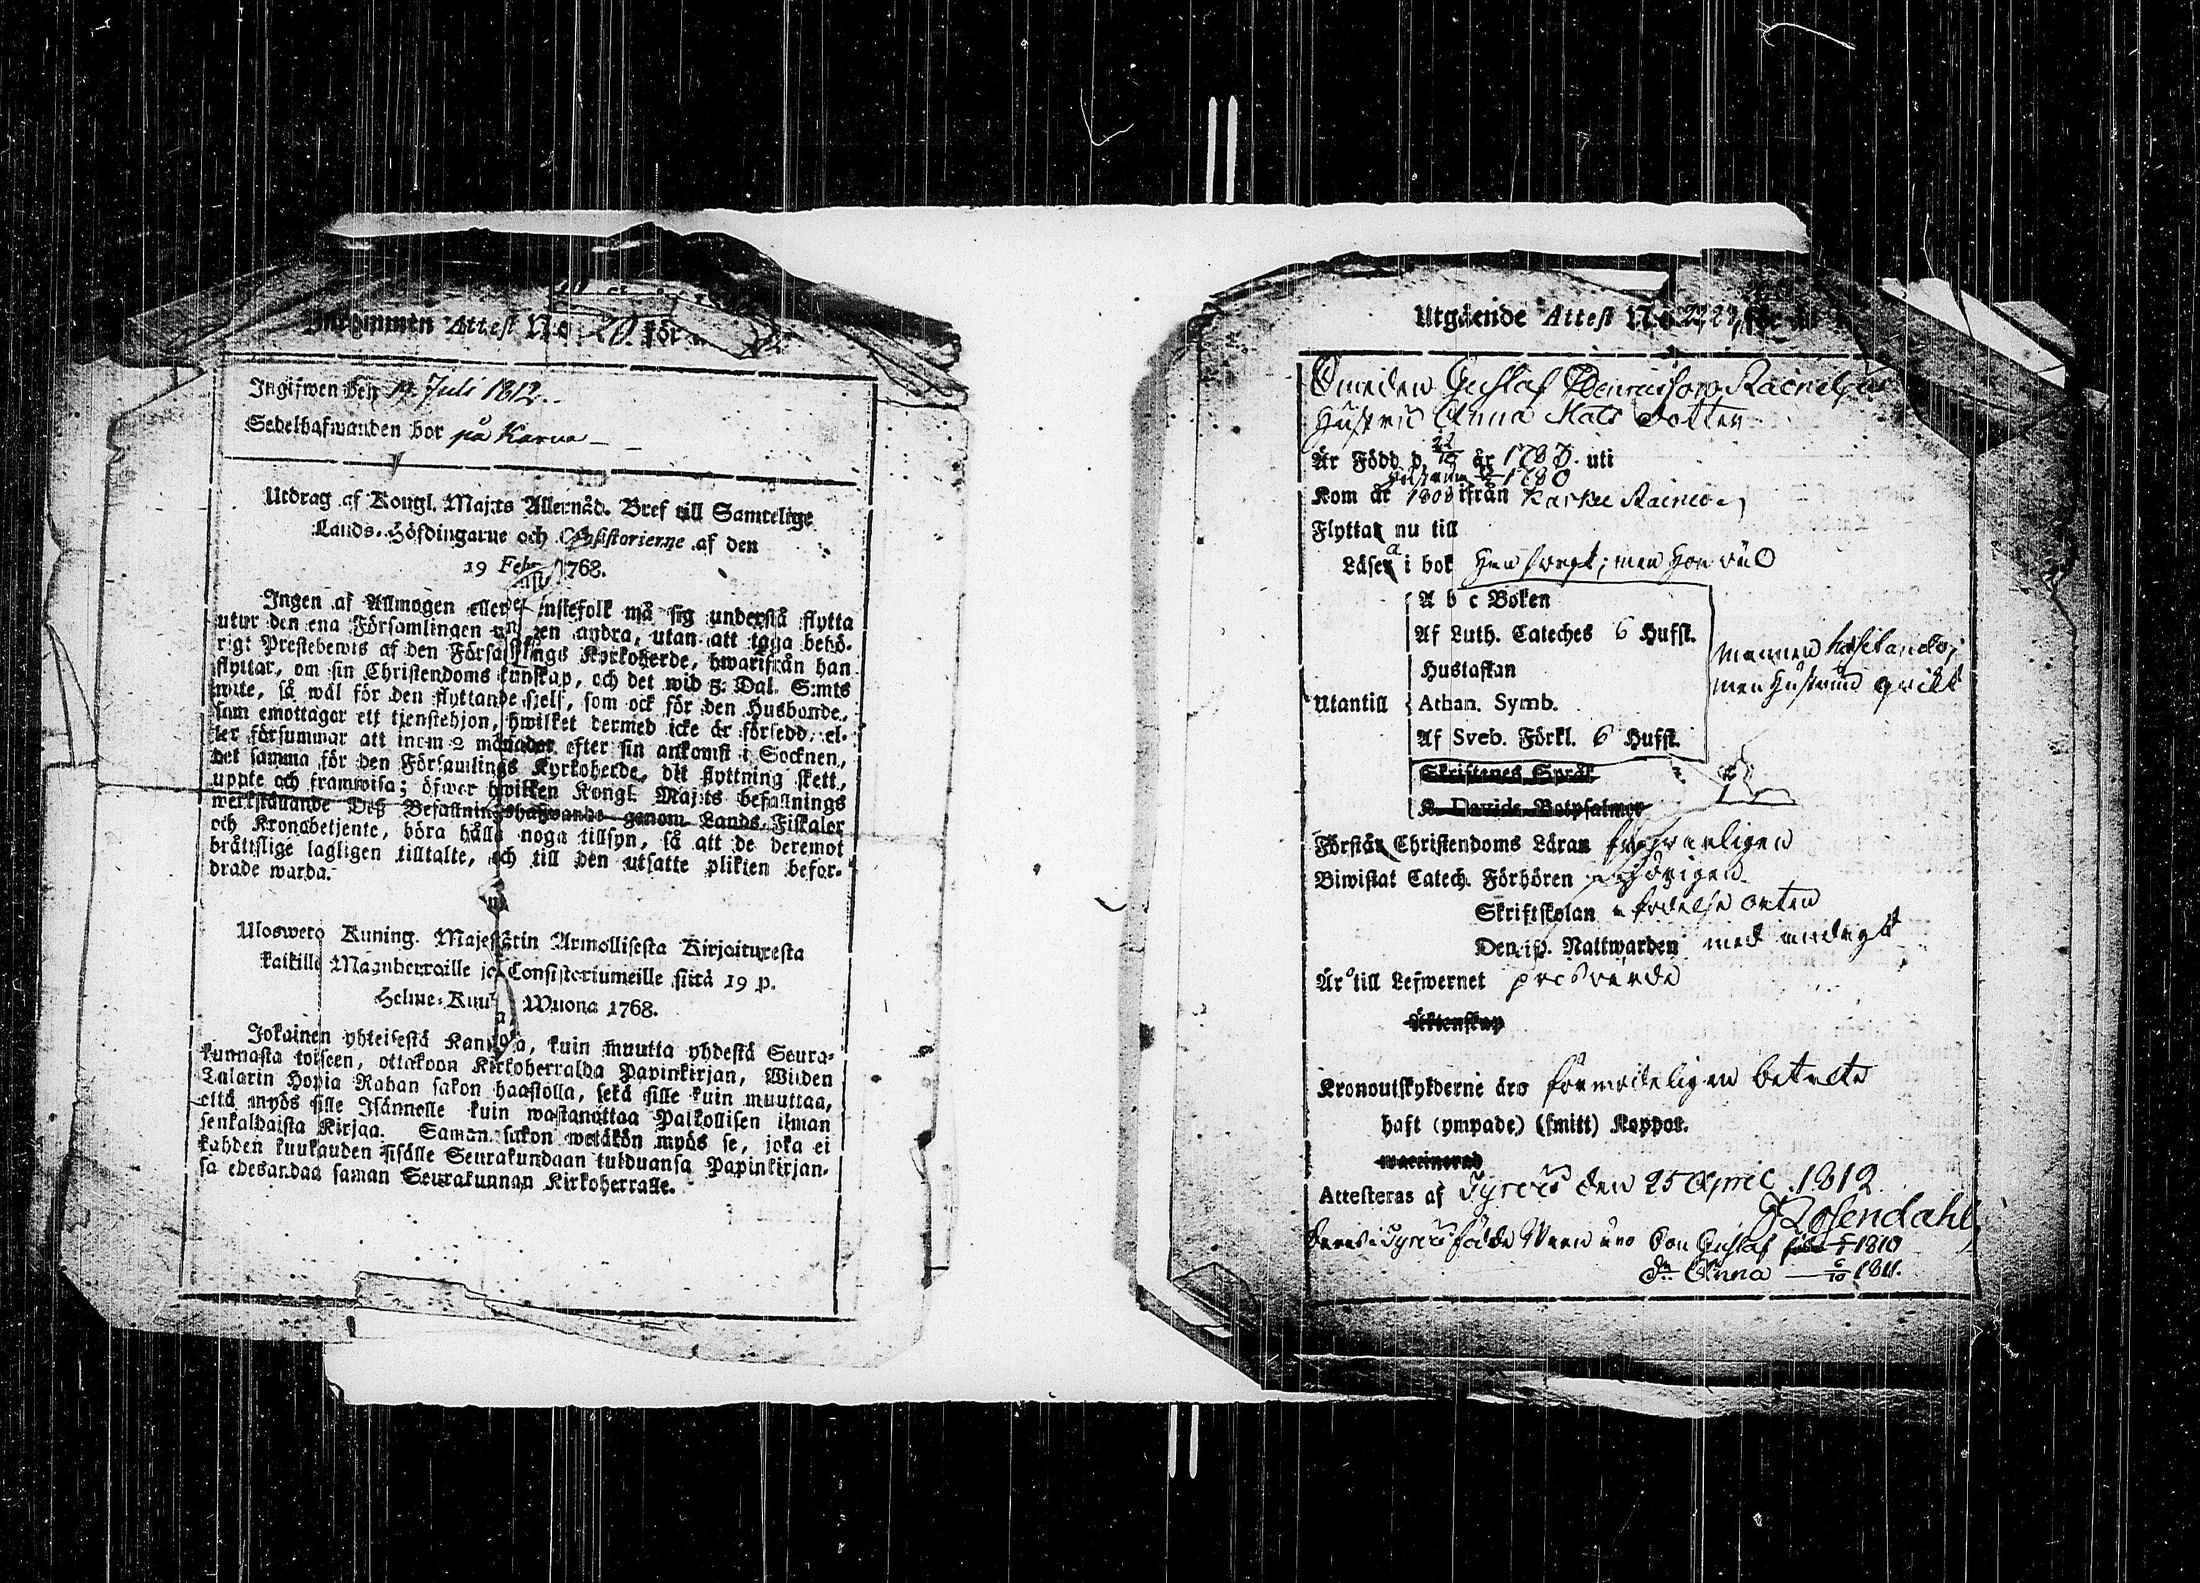 Inkommen Attest No 20. för
Ingifwen den 14. Juli 1812.
Sedelhafwanden bor på Karuna
Utdrag af Kongl. Maj:ts Allernåd. Bref till Samtelige
Lands-Höfdingarne och Consistorierne af den
19 Febr. 1768.
Ingen af Allmogen eller Tjenstefolk må sig understå flytta
utur den ena Församlingen uti den andra, utan att äga behö-
rigt Prestebewis af den Församlings Kyrkoherde, hwarifrån han
flyttar, om sin Christendoms kunskap, och det wid 5: Dal. S:mts
wite, så wäl för den flyttande sielf, som ock för den Husbonde,
som emottager ett tjenstehjon, hwilket dermed icke är försedd, el-
ler försummar att inom 2 månader efter sin ankomst i Socknen,
det samma för den Församlings Kyrkoherde, dit flyttning skett,
uppte och framwisa; öfwer hwilken Kongl. Maj:ts befallnings
werkställande Deß Befallningshafwande genom Lands-Fiskaler
och Kronobetjente, böra hålla noga tillsyn, så att de deremot
bråttslige lagligen tilltalte, och till den utsatte plikten befor-
drade warda.
Ulosweto Kuning. Majestätin Armollisesta Kirjoituxesta
kaikille Maanherroille ja Consistoriumeille siitä 19 p.
Helme-Kuusa Wuona 1768.
Jokainen yhteisestä Kansasta, kuin muutta yhdestä Seura-
kunnasta toiseen, ottakoon Kirkoherralda Papinkirjan, Wiiden
Talarin Hopia Rahan sakon haastolla, sekä sille kuin muuttaa,
että myös sille Isännelle kuin wastanottaa Palkollisen ilman
senkaldaista Kirjaa. Saman sakon wetäkön myös se, joka ei
kahden kuukauden sisälle Seurakundaan tulduansa Papinkirjan-
sa edesandaa saman Seurakunnan Kirkoherralle.
Utgående Attest No 22, 23, för
Smeden Gustaf Henricsson Raineli
Hustru Anna Mats Dotter
Är Född d. 22/10 år 1787. uti
Hustrun 1780
Kom år 1808 ifrån Karku Rainio
Flyttar nu till
Läsa i bok Han svagt; men Hon väl
A b c Boken
Af Luth. Cateches 6 Hufst.
Hustaflan
Utantill Athan. Symb.
Af Sveb. Förkl. 6 Hufst.
mannen hasitando;
men hustrun qvikt
Skriftenes Språk
K. Davids Botpsalmer
Förstår Christendoms Läran försvarligen
Biwistat Catech. Förhören behörigen
Skriftskolan a födelse orten
Den H. Nattwarden med andagt
Är till Lefwernet frisvarde
Äktenskap
Kronoutskylderne äro förmodeligen betalte
haft (ympade) (smitt) Koppor.
waccinerad
Attesteras af Tyrvis den 25 April 1812
Rosendahl
Deras i Tyrvis födde Barn äro Son Gustaf född 1810
Dr Anna 6/10 1811.